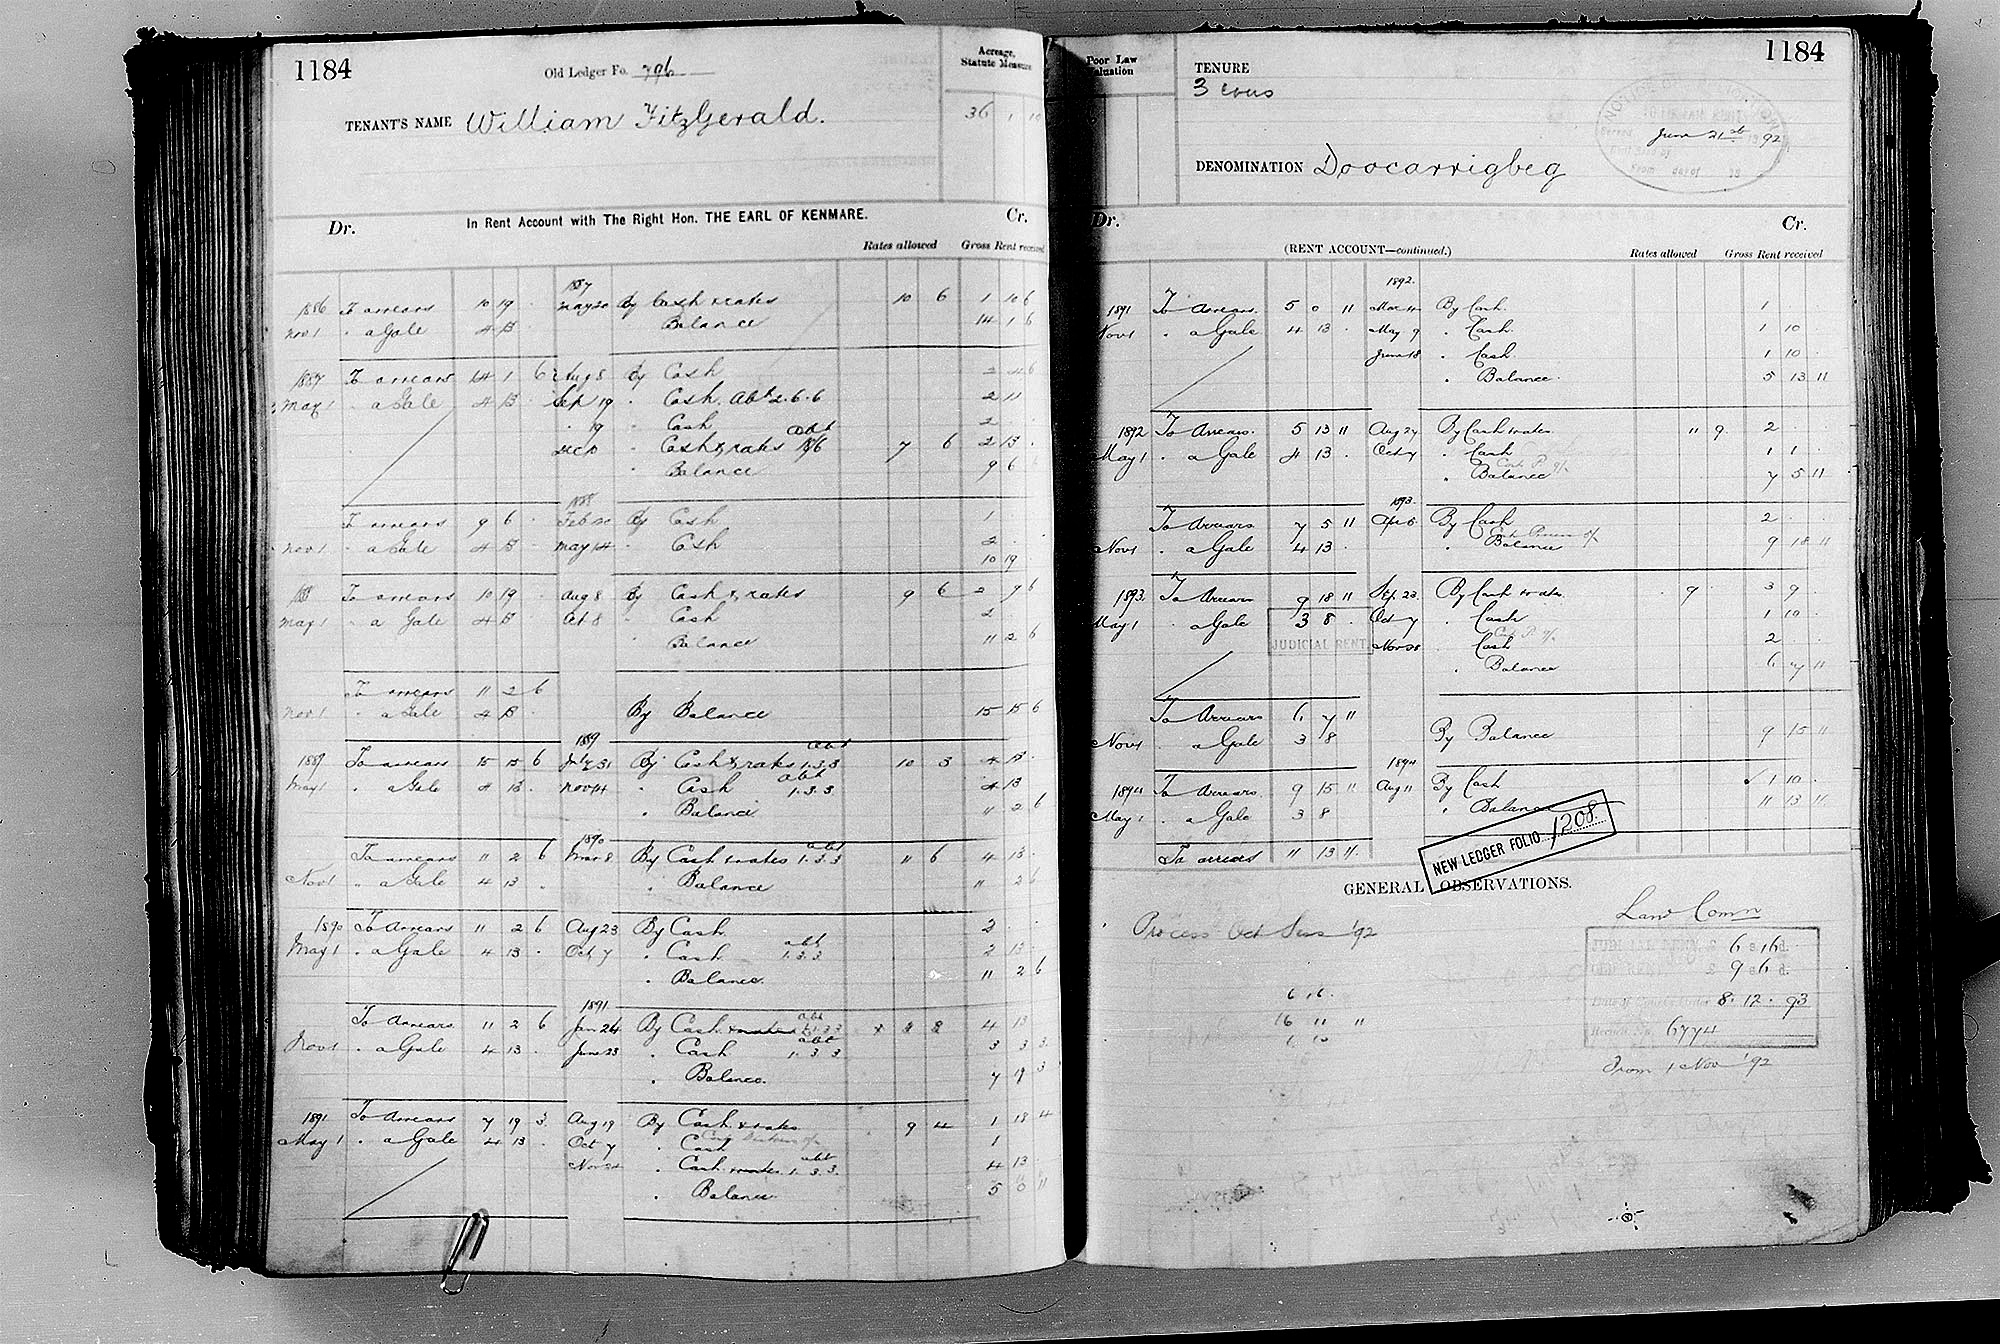 1184
Old Ledger Fo. 796
Acreage, Statute Measure
TENANT'S NAME William Fitzgerald.
36 1
In Rent Account with The Right Hon. THE EARL OF KENMARE.
Dr. Cr.
Rates allowed Gross Rent received
1887
1886 To arrears 10 19 . May 20 By Cash & rates 10 6 1 10 6
Nov 1 " a Gale 4 13 . Balance 14 1 6
1887 To arrears 14 1 6 Aug 8 By Cash 2 4 6
May 1 " a Gale 4 13 . Sep 19 " Cash. Abt 2.6.6 2 11
" 19 " Cash 2 .
Dec 10 " Cash & rates abt 7 6 2 13 .
" Balance 9 6
1888
To arrears 9 6 . Feb 20 By Cash 1
Nov 1 " a Gale 4 13 May 14 " Cash 2 .
10 19
1888 To arrears 10 19 . Aug 8 By Cash & rates 9 6 2 9 6
May 1 " a Gale 4 13 . Oct 8 " Cash 2
" Balance 11 2 6
To arrears 11 2 6
Nov 1 " a Gale 4 13 . By Balance 15 15 6
1889
1889 To arrears 15 15 6 July 31 By Cash & rates abt 1.3.3 10 3 4 13 .
May 1 " a Gale 4 13 . Nov 14 " Cash abt 1.3.3 4 13
" Balance 11 2 6
1890
To arrears 11 2 6 Mar 8 By Cash & rates abt 1.3.3 11 6 4 13 .
Nov 1 " a Gale 4 13 . " Balance 11 2 6
1890 To Arrears 11 2 6 Aug 23 By Cash. 2 .
May 1 " a Gale 4 13 . Oct 7 " Cash abt 1.3.3 2 13 .
" Balance. 11 2 6
1891
To Arrears 11 2 6 Jan 24 By Cash & rates abt 1.3.3 8 8 4 13
Nov 1 " a Gale 4 13 . June 23 " Cash abt 1.3.3 3 3 3
" Balance. 7 19 3
1891 To Arrears 7 19 3. Aug 19 By Cash & rates 9 4 1 18 4
May 1 " a Gale 4 13 . Oct 7 " Cash 1
Nov 24 " Cash & rates abt 1.3.3. 4 13 .
" Balance. 5 0 11
Poor Law Valuation
TENURE
1184
3 cows
June 21st 92
DENOMINATION Doocarrigbeg
Dr. Cr.
(RENT ACCOUNT—continued.) Rates allowed Gross Rent received
1892.
1891 To Arrears. 5 0 11 Mar 14 By Cash. 1 .
Nov 1 " a Gale 4 13 . May 9 " Cash. 1 10
June 18 " Cash. 1 10 .
" Balance. 5 13 11
1892 To Arrears. 5 13 11 Aug 27 By Cash & rates 11 9. 2 .
May 1 " a Gale 4 13 . Oct 7 " Cash 1 1 .
" Balance 7 5 11
1893.
To Arrears 7 5 11 Apr 6 By Cash 2 .
Nov 1 " a Gale 4 13 . " Balance 9 18 11
1893. To Arrears 9 18 11 Sep. 23. By Cash & rates. 9 . 3 9 .
May 1 " a Gale 3 8 . Oct 7 " Cash 1 10 .
JUDICIAL RENT Nov 28 " Cash 2 .
" Balance 6 7 11
To Arrears 6 7 11
Nov 1 " a Gale 3 8 By Balance 9 15 11
1894
1894 To Arrears. 9 15 11 Aug 11 By Cash ✓ 1 10 .
May 1 " a Gale 3 8 " Balance 11 13 11
NEW LEDGER FOLIO 1208.
To arrears 11 13 11.
GENERAL OBSERVATIONS.
Process Oct Sess '92
Land Comn
JUDICIAL RENT, £ 6 s. 16 d.
OLD RENT £ 9 s 6 d.
8. 12. 93
6774
From 1 Nov '92
6 16.
16 11 "
1 10